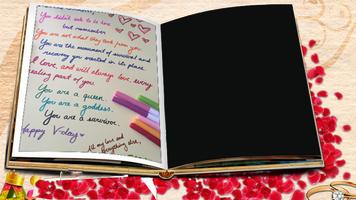 You didn't ask to be here
but remember
You are not what they took from you.
You are the monument of survival and
recovery you wanted in its place.
I love, and will always love, every
healing part of you.
You are a queen.
You are a goddess.
You are a survivor.
Happy V-day
All my love and
everything else,